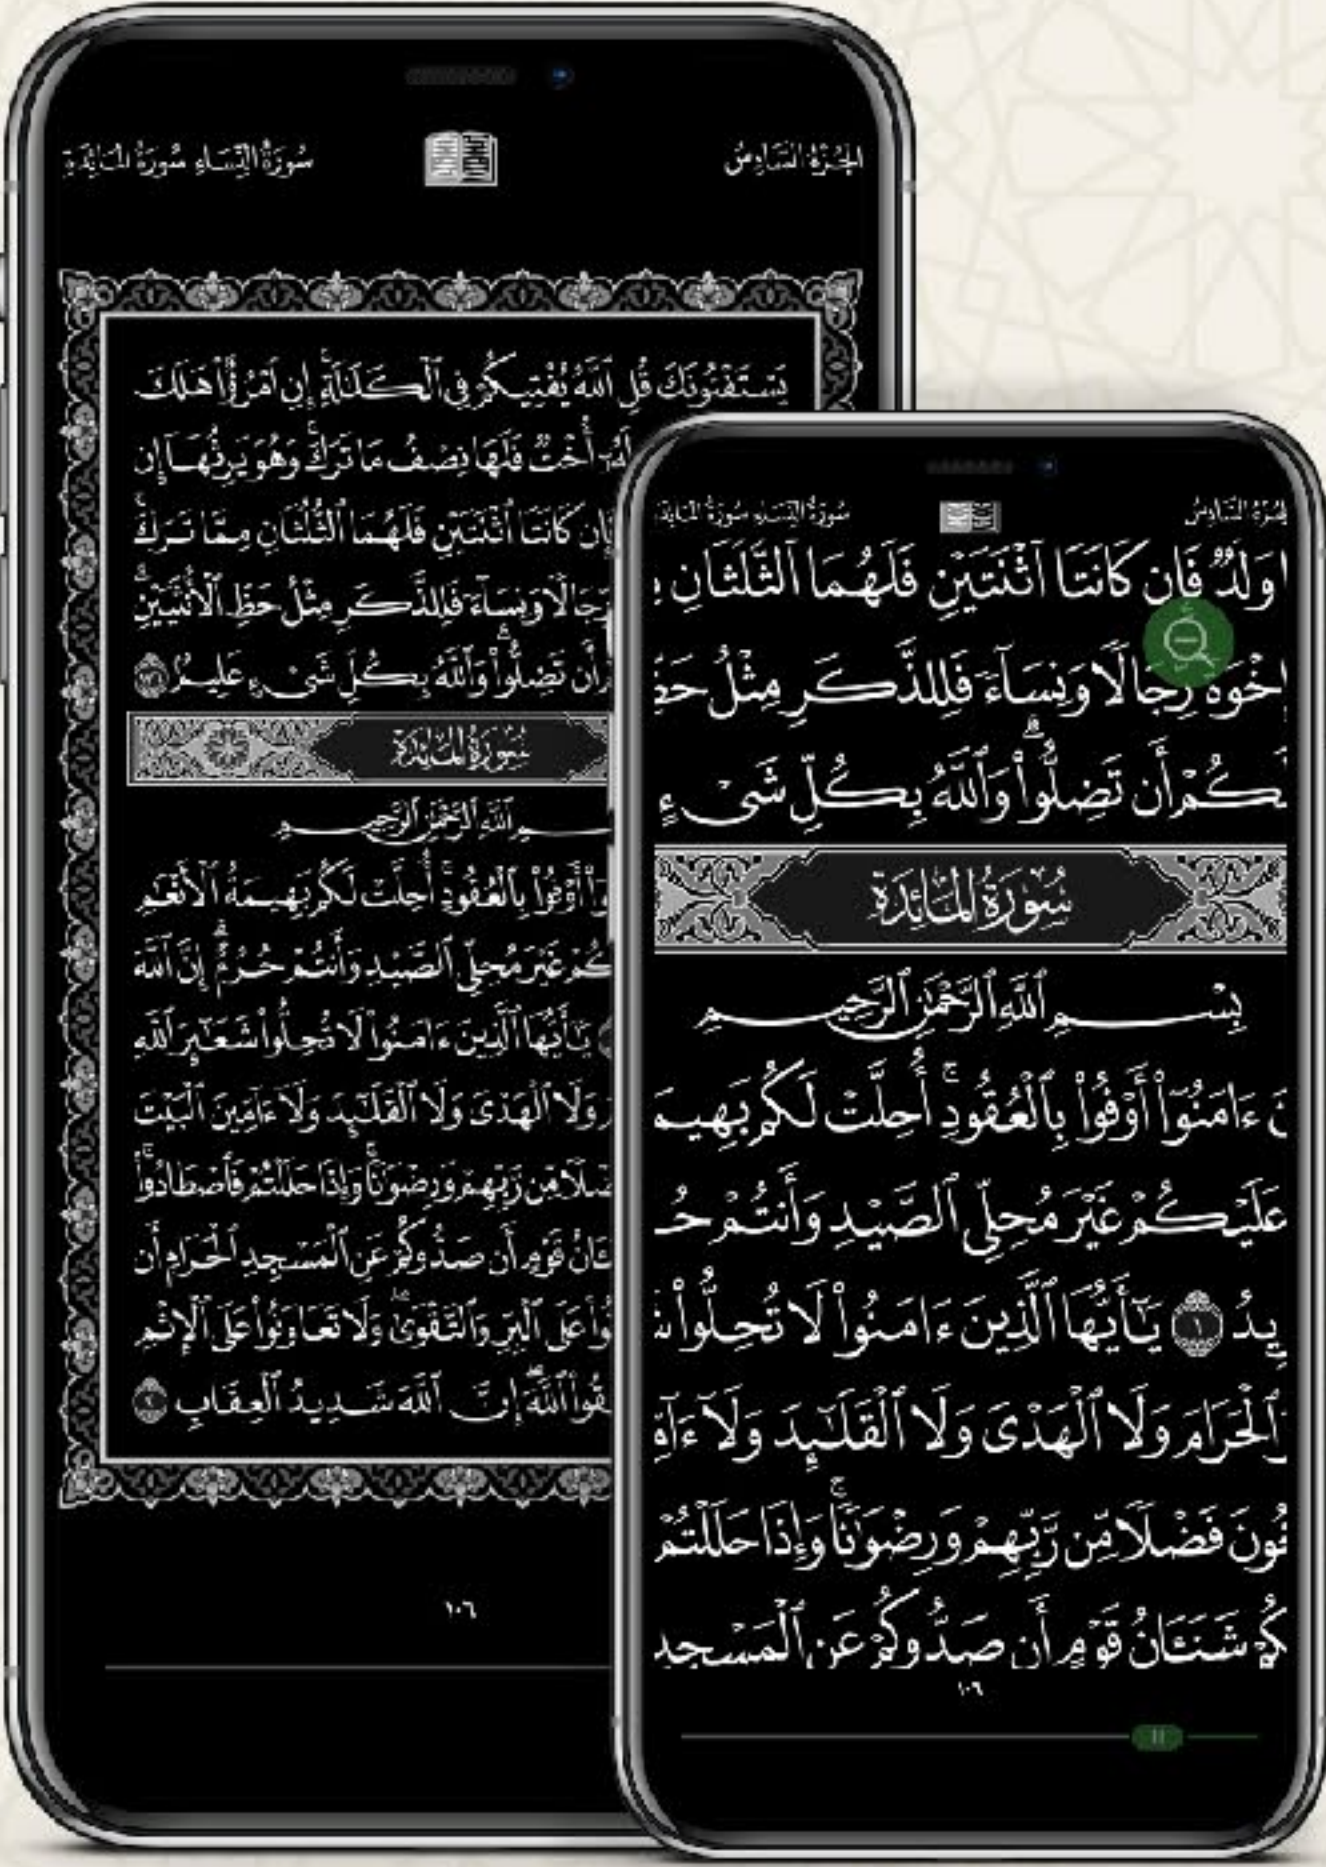 الجُزْءُ السَّادِسُ
سُورَةُ النِّسَاءِ سُورَةُ المَائِدَةِ
يَسْتَفْتُونَكَ قُلِ ٱللَّهُ يُفْتِيكُمْ فِى ٱلْكَلَٰلَةِ ۚ إِنِ ٱمْرُؤٌا۟ هَلَكَ
لَهُۥٓ أُخْتٌ فَلَهَا نِصْفُ مَا تَرَكَ ۚ وَهُوَ يَرِثُهَآ إِن
فَإِن كَانَتَا ٱثْنَتَيْنِ فَلَهُمَا ٱلثُّلُثَانِ مِمَّا تَرَكَ ۚ
رِّجَالًا وَنِسَآءً فَلِلذَّكَرِ مِثْلُ حَظِّ ٱلْأُنثَيَيْنِ ۗ
أَن تَضِلُّوا۟ ۗ وَٱللَّهُ بِكُلِّ شَىْءٍ عَلِيمٌۢ ١٧٦
سُورَةُ المَائِدَةِ
ٱللَّهِ ٱلرَّحْمَٰنِ ٱلرَّحِيمِ
أَوْفُوا۟ بِٱلْعُقُودِ ۚ أُحِلَّتْ لَكُم بَهِيمَةُ ٱلْأَنْعَٰمِ
غَيْرَ مُحِلِّى ٱلصَّيْدِ وَأَنتُمْ حُرُمٌ ۗ إِنَّ ٱللَّهَ
يَٰٓأَيُّهَا ٱلَّذِينَ ءَامَنُوا۟ لَا تُحِلُّوا۟ شَعَٰٓئِرَ ٱللَّهِ
وَلَا ٱلْهَدْىَ وَلَا ٱلْقَلَٰٓئِدَ وَلَآ ءَآمِّينَ ٱلْبَيْتَ
مِّن رَّبِّهِمْ وَرِضْوَٰنًا ۚ وَإِذَا حَلَلْتُمْ فَٱصْطَادُوا۟ ۚ
قَوْمٍ أَن صَدُّوكُمْ عَنِ ٱلْمَسْجِدِ ٱلْحَرَامِ أَن
عَلَى ٱلْبِرِّ وَٱلتَّقْوَىٰ ۖ وَلَا تَعَاوَنُوا۟ عَلَى ٱلْإِثْمِ
ٱللَّهَ ۖ إِنَّ ٱللَّهَ شَدِيدُ ٱلْعِقَابِ ٢
١٠٦
سُورَةُ النِّسَاءِ سُورَةُ
وَلَدٌ ۚ فَإِن كَانَتَا ٱثْنَتَيْنِ فَلَهُمَا ٱلثُّلُثَانِ
إِخْوَةً رِّجَالًا وَنِسَآءً فَلِلذَّكَرِ مِثْلُ
لَكُمْ أَن تَضِلُّوا۟ ۗ وَٱللَّهُ بِكُلِّ شَىْءٍ
سُورَةُ المَائِدَةِ
بِسْمِ ٱللَّهِ ٱلرَّحْمَٰنِ ٱلرَّحِيمِ
ءَامَنُوٓا۟ أَوْفُوا۟ بِٱلْعُقُودِ ۚ أُحِلَّتْ لَكُم
عَلَيْكُمْ غَيْرَ مُحِلِّى ٱلصَّيْدِ وَأَنتُمْ
يدُ ١ يَٰٓأَيُّهَا ٱلَّذِينَ ءَامَنُوا۟ لَا تُحِلُّوا۟
ٱلْحَرَامَ وَلَا ٱلْهَدْىَ وَلَا ٱلْقَلَٰٓئِدَ وَلَآ
فَضْلًا مِّن رَّبِّهِمْ وَرِضْوَٰنًا ۚ وَإِذَا حَلَلْتُمْ
شَنَـَٔانُ قَوْمٍ أَن صَدُّوكُمْ عَنِ ٱلْمَسْجِدِ
١٠٦